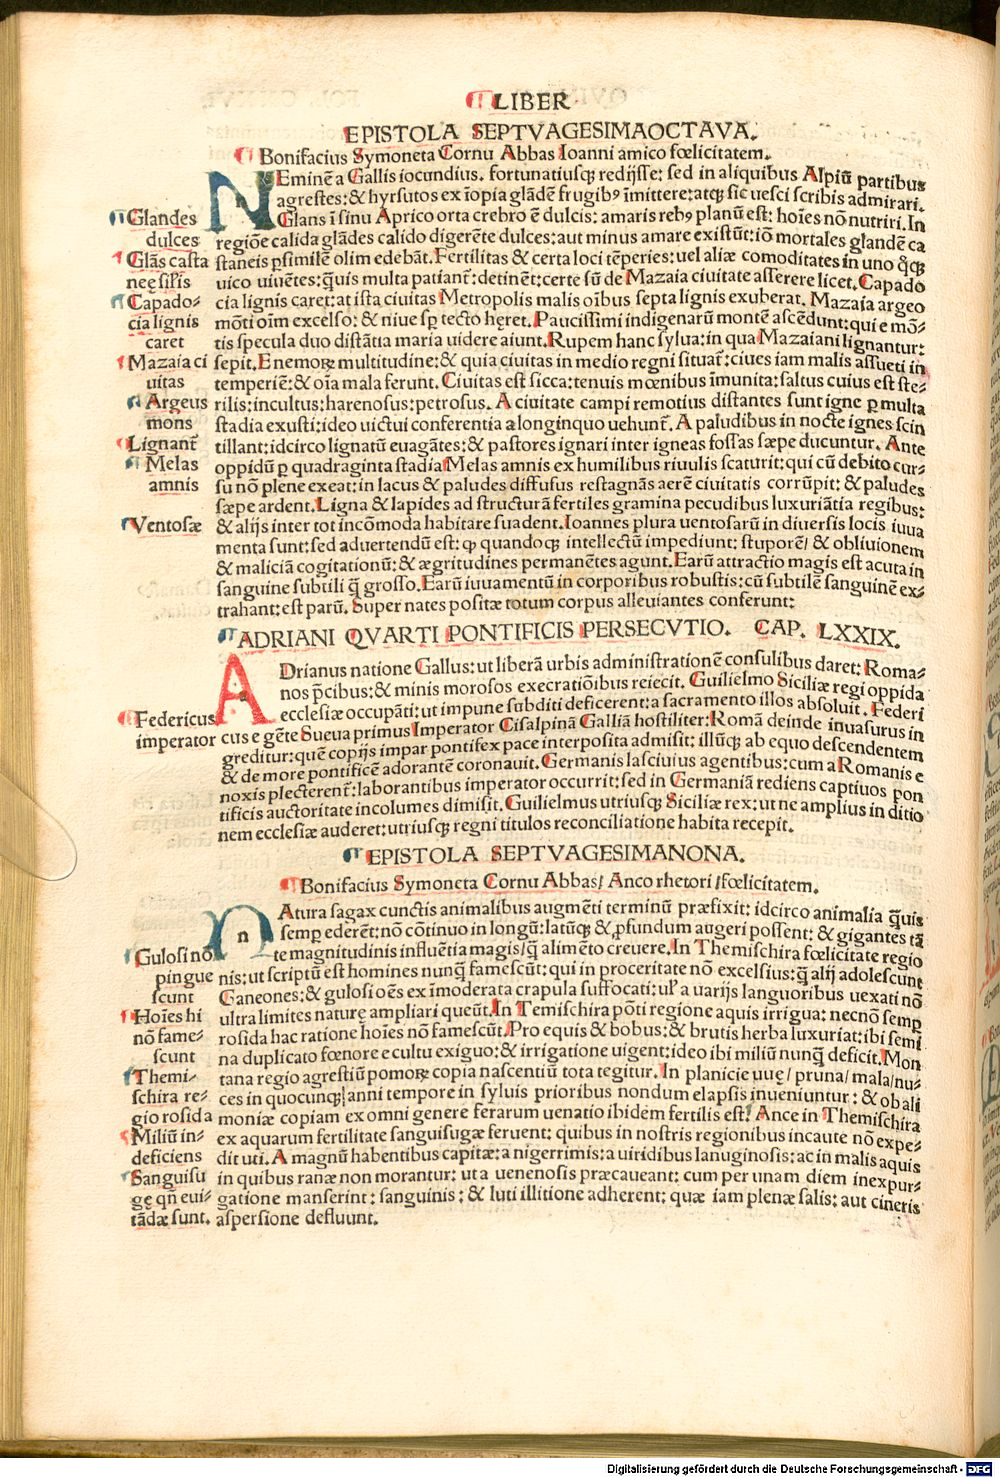 LIBER
EPISTOLA SEPTVAGESIMAOCTAVA.
Bonifacius Symoneta Cornu Abbas Ioanni amico fœlicitatem.
NEminē a Gallis iocundius. fortunatiusq; redijsse: sed in aliquibus Alpiū partibus
agrestes: & hyrsutos ex īopia glādē frugibꝰ īmittere: atq; sic uesci scribis admirari.
Glans ī sinu Aprico orta crebro ē dulcis: amaris rebꝰ planū est: hoīes nō nutriri. In
regiōe calida glādes calido digerēte dulces: aut minus amare existūt: iō mortales glandē ca
staneis ꝑsimilē olim edebāt. Fertilitas & certa loci tēperies: uel aliæ comoditates in uno q̄q;
uico uiuētes: q̄uis multa patianť: detinēt: certe sū de Mazaia ciuitate asserere licet. Capado
cia lignis caret: at ista ciuitas Metropolis malis oībus septa lignis exuberat. Mazaia argeo
mōti oīm excelso: & niue sꝑ tecto hęret. Paucissimi indigenarū montē ascēdunt: qui e mō-
tis specula duo distātia maria uidere aiunt. Rupem hanc sylua: in qua Mazaiani lignantur:
sepit. E nemoꝝ multitudine: & quia ciuitas in medio regni situať: ciues iam malis assueti in
temperiē: & oīa mala ferunt. Ciuitas est sicca: tenuis mœnibus īmunita: saltus cuius est ste-
rilis: incultus: harenosus: petrosus. A ciuitate campi remotius distantes sunt igne ꝑ multa
stadia exusti: ideo uictui conferentia a longinquo uehunť. A paludibus in nocte ignes scin
tillant: idcirco lignatū euagātes: & pastores ignari inter igneas fossas sæpe ducuntur. Ante
oppidū ꝑ quadraginta stadia Melas amnis ex humilibus riuulis scaturit: qui cū debito cur-
su nō plene exeat: in lacus & paludes diffusus restagnās aerē ciuitatis corrūpit: & paludes
sæpe ardent. Ligna & lapides ad structurā fertiles gramina pecudibus luxuriātia regibus:
& alijs inter tot incōmoda habitare suadent. Ioannes plura uentosarū in diuersis locis iuua
menta sunt: sed aduertendū est: ꝙ quandoq; intellectū impediunt: stuporē/ & obliuionem
& maliciā cogitationū: & ægritudines permanētes agunt. Earū attractio magis est acuta in
sanguine subtili q̄ grosso. Earū iuuamentū in corporibus robustis: cū subtilē sanguinē ex-
trahant: est parū. Super nates positæ totum corpus alleuiantes conferunt:
Glandes
dulces
Glās casta
neę sīlis
Capado-
cia lignis
caret
Mazaia ci
uitas
Argeus
mons
Lignanť
Melas
amnis
Ventosæ
ADRIANI QVARTI PONTIFICIS PERSECVTIO. CAP. LXXIX.
ADrianus natione Gallus: ut liberā urbis administrationē consulibus daret: Roma-
nos p̄cibus: & minis morosos execratiōibus reiecit. Guilielmo Siciliæ regi oppida
ecclesiæ occupāti: ut impune subditi deficerent: a sacramento illos absoluit. Federi
cus e gēte Sueua primus Imperator Cisalpinā Galliā hostiliter: Romā deinde inuasurus in
greditur: quē copijs impar pontifex pace interposita admisit: illūq; ab equo descendentem
& de more pontificē adorantē coronauit. Germanis lasciuius agentibus: cum a Romanis e
noxis plecterenť: laborantibus imperator occurrit: sed in Germaniā rediens captiuos pon
tificis auctoritate incolumes dimisit. Guilielmus utriusq; Siciliæ rex: ut ne amplius in ditio
nem ecclesiæ auderet: utriusq; regni titulos reconciliatione habita recepit.
Federicus
imperator
EPISTOLA SEPTVAGESIMANONA.
Bonifacius Symoneta Cornu Abbas/ Anco rhetori/ fœlicitatem.
nAtura sagax cunctis animalibus augmēti terminū præfixit: idcirco animalia q̄uis
semꝑ ederēt: nō cōtinuo in longū: latūq; & ꝓfundum augeri possent: & gigantes tā
te magnitudinis influētia magis/ q̄ alimēto creuere. In Themischira fœlicitate regio
nis: ut scriptū est homines nunq̄ famescūt: qui in proceritate nō excelsius: q̄ alij adolescunt
Ganeones: & gulosi oēs ex īmoderata crapula suffocati: uľ a uarijs languoribus uexati nō
ultra limites naturę ampliari queūt. In Temischira pōti regione aquis irrigua: necnō semꝑ
rosida hac ratione hoīes nō famescūt. Pro equis & bobus: & brutis herba luxuriat: ibi semi
na duplicato fœnore e cultu exiguo: & irrigatione uigent: ideo ibi miliū nunq̄ deficit. Mon
tana regio agrestiū pomoꝝ copia nascentiū tota tegitur. In planicie uuę/ pruna/ mala/ nu-
ces in quocunq; anni tempore in syluis prioribus nondum elapsis inueniuntur: & ob ali
moniæ copiam ex omni genere ferarum uenatio ibidem fertilis est. Ance in Themischira
ex aquarum fertilitate sanguisugæ feruent: quibus in nostris regionibus incaute nō expe-
dit uti. A magnū habentibus capitæ: a nigerrimis: a uiridibus lanuginosis: ac in malis aquis
in quibus ranæ non morantur: ut a uenenosis præcaueant: cum per unam diem inexpur-
gatione manserint: sanguinis: & luti illitione adherent: quæ iam plenæ salis: aut cineris
aspersione defluunt.
Gulosi nō
pingue
scunt
Hoīes hi
nō fame-
scunt
Themi-
schira re-
gio rosida
Miliū in-
deficiens
Sanguisu
gę qn̄ eui-
tādæ sunt.
Digitalisierung gefördert durch die Deutsche Forschungsgemeinschaft - DFG